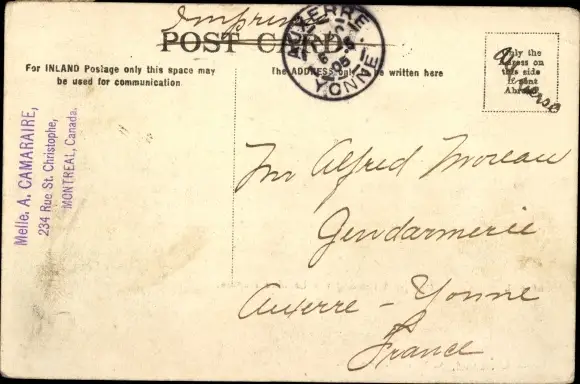 Imprimé
POST CARD
AUXERRE
YONNE
For INLAND Postage only this space may
be used for communication
The ADDRESS only be written here
Only the
Adress on
this side
if sent
Abroad
Melle. A. CAMARAIRE,
234 Rue St. Christophe,
MONTREAL, Canada.
Mr Alfred Moreau
Gendarmerie
Auxerre - Yonne
France